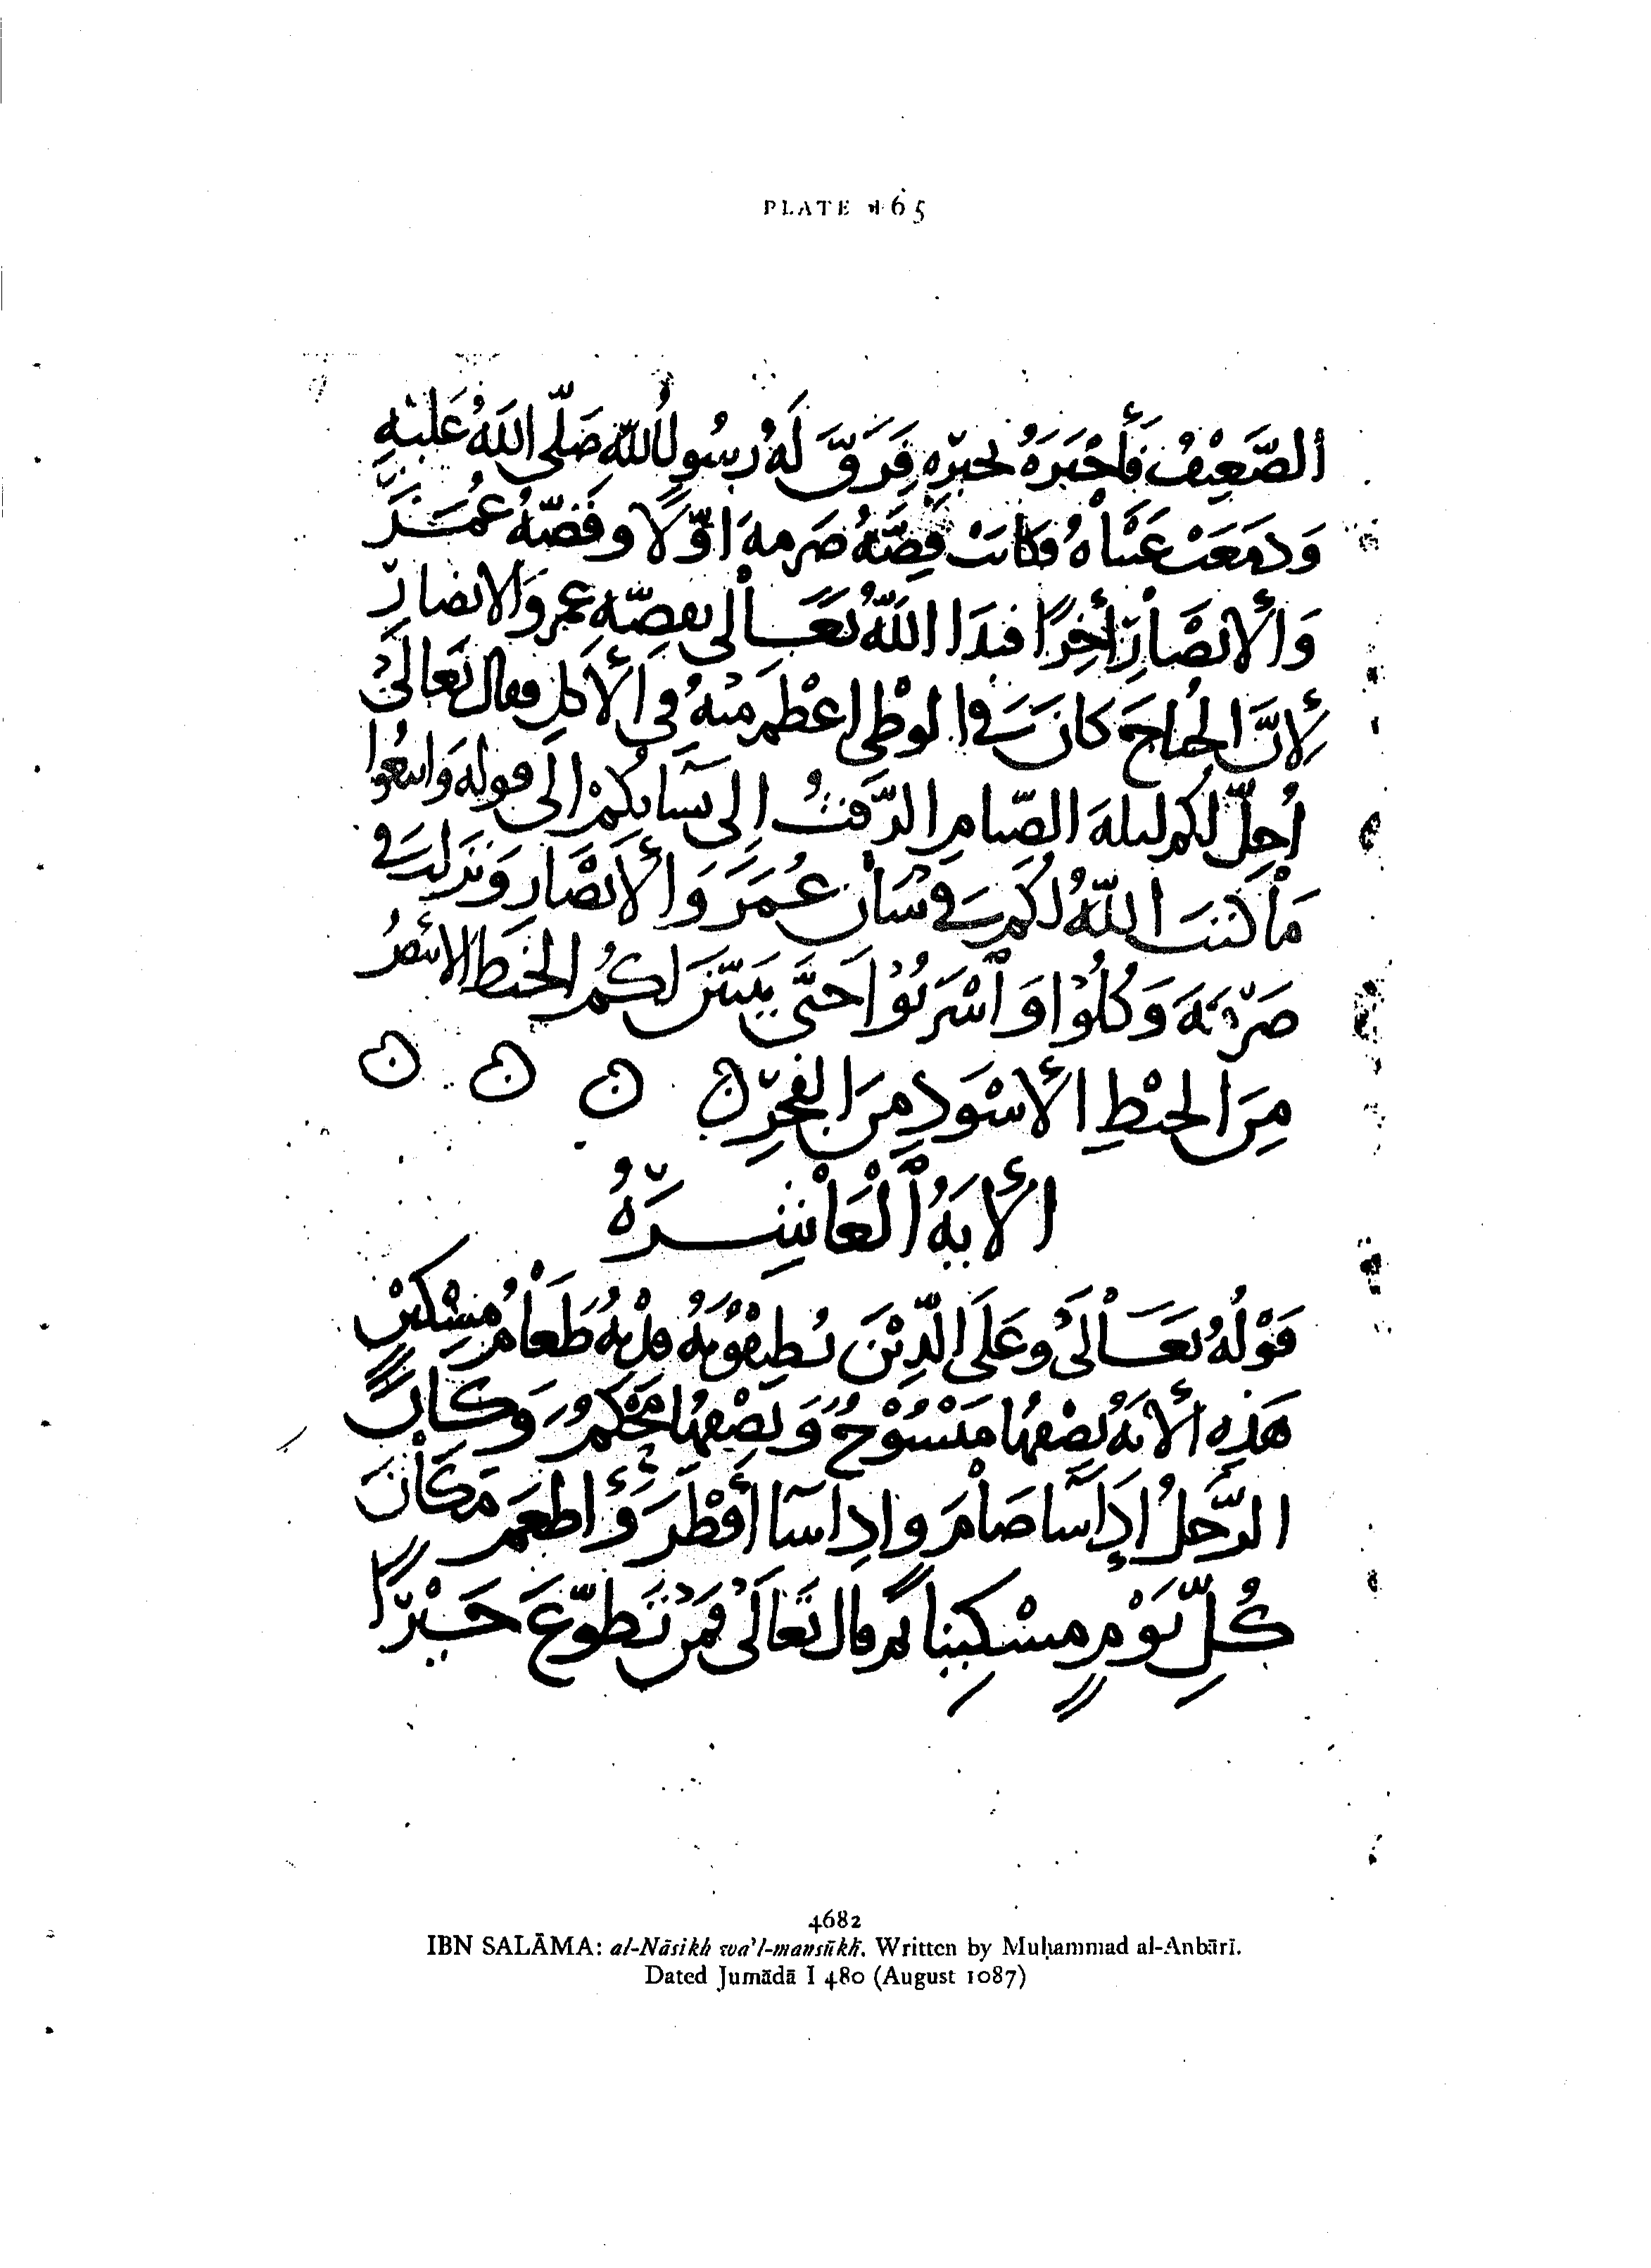 PLATE 165
الضَّعِيْفُ فَأَخْبَرَهُ بخبَرِّهِ فَرَقَّ لَهُ رَسُولُ اللّهِ صَلَّى اللَهُ عَلَيْهِ
وَدَمَعَتْ عَيْنَاهُ فَكَانَتْ قِصَّةُ صَرمةَ اوَّلًا وَقصّةُ عُمَرَ
وَالأنصَارِ أخِرًا فبَدَا اللَّهُ تَعَالى بقصِّةِ عمر وَالانصار
لأِنَّ الجُناحَ كانَ في الوطْىِ اعْظَم مِنْهُ فى الأكلِ فقال تَعَالَى
اُحِلَّ لَكُم ليلةَ الصّيامِ الرَّفَثُ إِلى نسَآئكُمْ الَى قوله وَابتغُوا
مَا كتَبَ اللّهُ لَكُم في شأن عُمَرَ وَالأنصَار وَنَزلت في
صَرْمَةَ وَكُلُوْا وَاشْرَبُوْا حَتَّى يَتبَيّنَ لَكُمُ الخيَط الأبيَضُ
مِنَ الخيْطِ الأسْوَدِ مِنَ الفَجْرِ ن ن ن ن
الأيةُ الْعَاشِرَةُ
قَوْلُهُ تَعَالَى وعَلَى الَّذِيْنَ يُطِيْقُوْنَهُ فِدْيةُ طَعَامُ مِسْكِيْنٍ
هَذِهِ الأيةُ نِصْفُهَا مَنْسُوْخٌ وَنِصْفُهَا مُحْكَمٌ وَكانَ
الرَّجلُ إذا شَآ صَامَ واذا شآ أَفْطَرَ وَأَطعَمَ مَكَانَ
كُلِّ يَوْمٍ مِسْكِينِا ثم قال تعَالَى فمَنْ تَطَوَّعَ خَيْرًا
4682
IBN SALĀMA: al-Nāsikh wa'l-mansūkh. Written by Muḥammad al-Anbārī.
Dated Jumādā I 480 (August 1087)